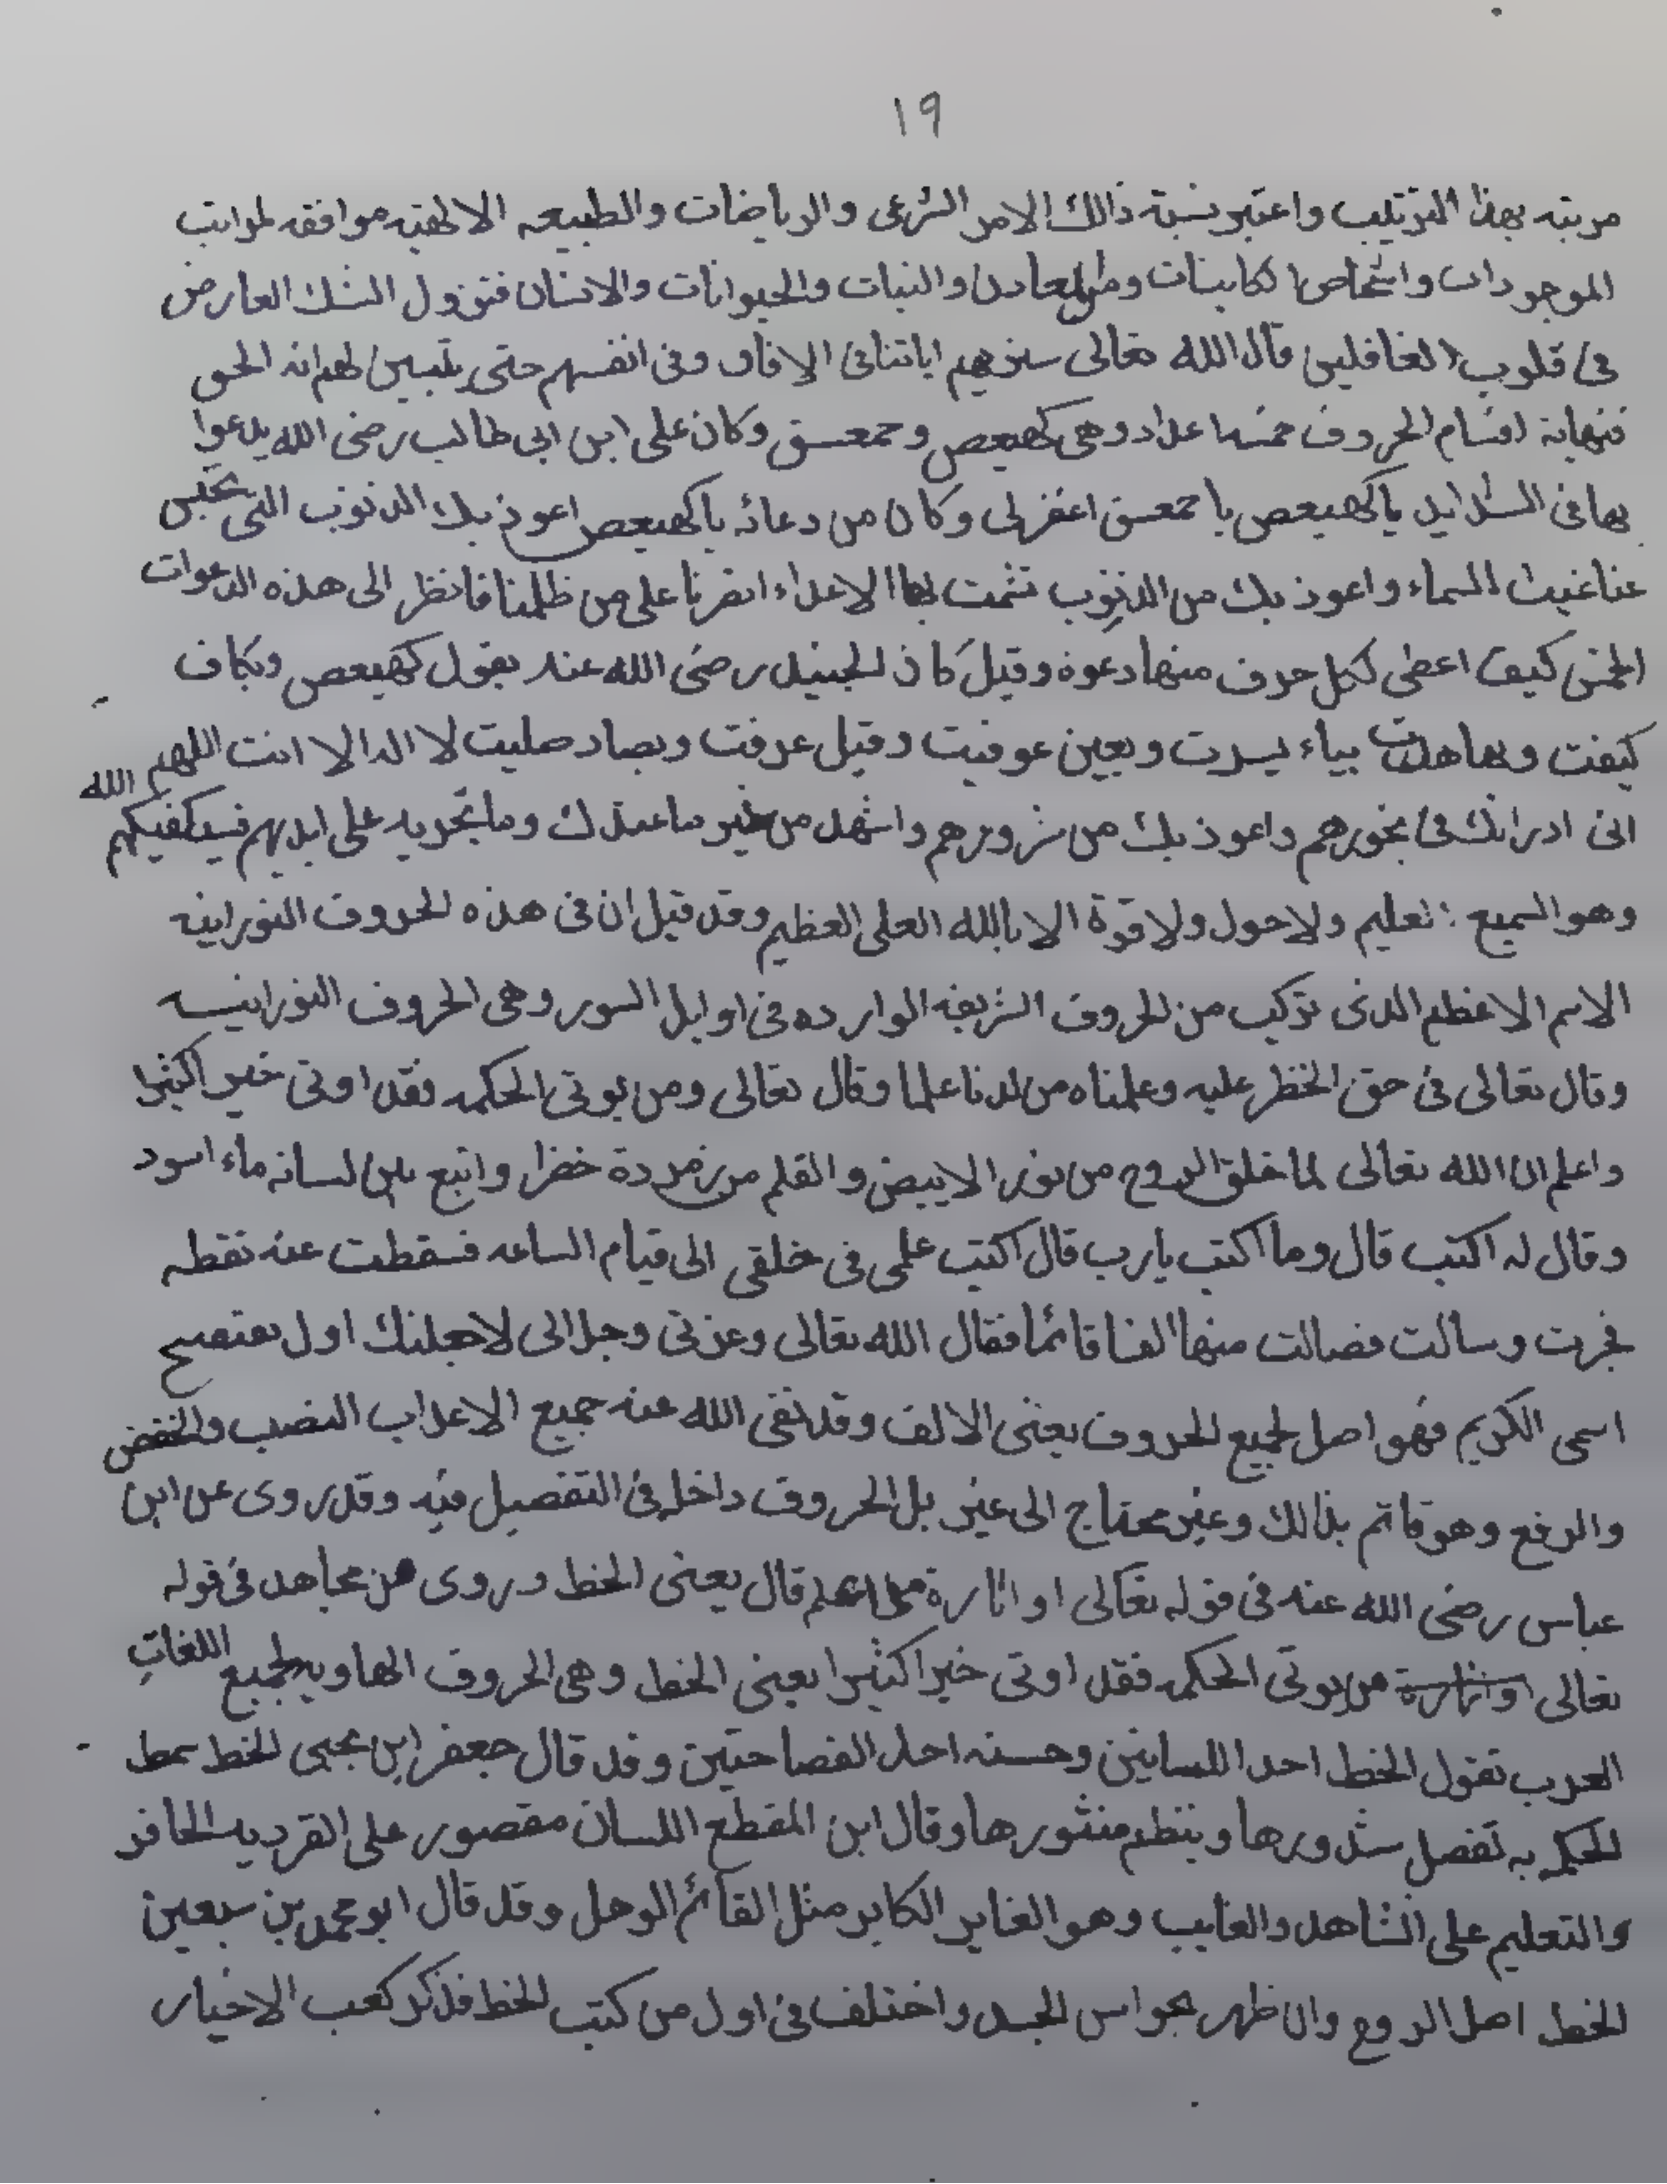 ١٩
مرتبه بهذا الترتيب واعتبر نسبة ذالك الامر الشرعى والرياضات والطبيعه الالهيه موافقه لمراتب
الموجودات واشخاص الكاينات ومن المعادن والنبات والحيوانات والانسان فتزول الشك العارض
فى قلوب الغافلين قال الله تعالى سنريهم اياتنا فى الافاق وفى انفسهم حتى يتبين لهم انه الحق
فنهاية اقسام الحروف خمسه اعداد وهى كهيعص وحمعسق وكان على ابن ابى طالب رضى الله يدعوا
بها فى الشدايد ياكهيعص يا حمعسق اغفرلى وكان من دعائه ياكهيعص اعوذ بك الذنوب التى تحبس
عنا غيث السماء واعوذ بك من الذنوب تشمت بها الاعداء انصرنا على من ظلمنا فانظر الى هذه الدعوات
الخمس كيف اعطى لكل حرف منها دعوة وقيل كان الجنيد رضى الله عنه يقول كهيعص وبكاف
كيفت وبهاهديت بياء يسرت وبعين عوفيت وقيل عرفت وبصاد صليت لا اله الا انت اللهم
انى ادرائك فى نحورهم واعوذ بك من شرورهم واشهد من خير ما عندك وما تجريه على ايديهم فسيكفيكهم الله
وهو السميع العليم ولاحول ولا قوة الا بالله العلى العظيم وقد قيل ان فى هذه الحروف النورانيه
الاسم الاعظم الذى تركب من الحروف الشريفه الوارده فى اوايل السور وهى الحروف النورانيسه
وقال تعالى فى حق الخظر عليه وعلمناه من لدنا علما وقال تعالى ومن يوتى الحكمه فقد اوتى خير اكثيرا
واعلم ان الله تعالى لما خلق الروح من نور الابيض والقلم من زمردة خضرا وانبع من لسانه ماء اسود
وقال له اكتب قال وما اكتب يارب قال اكتب علمى فى خلقى الى قيام الساعه فسقطت عنه نقطه
فجرت وسالت فصالت منها الفا قائما فقال الله تعالى وعزتى وجلالى لاجعلنك اول مفتتح
اسمى الكريم فهو اصل لجميع الحروف يعنى الالف وقد نفى الله عنه جميع الاعراب النصب والخفض
والرفع وهو قائم بذالك وغير محتاج الى غير بل الحروف داخله فى التفصيل فيه وقد روى عن ابن
عباس رضى الله عنه فى قوله تعالى او اثارة من علم قال يعنى الخط وروى عن مجاهد فى قوله
تعالى من يوتى الحكمه فقد اوتى خيرا كثيرا يعنى الخط وهى الحروف الهاويه لجميع اللغات
العرب تقول الخط احد اللسانين وحسنه احد الفصاحتين وقد قال جعفر ابن يحيى الخط سمط
الحكمه به تفصل شذورها وينظم منثورها وقال ابن المقطع اللسان مقصور على القرديه الحافر
والتعليم على الشاهد والغايب وهو الغاير الكابر مثل القائم الوهل وقد قال ابو محمد بن سبعين
الخط اصل الروح وان ظهر بحواس الجسد واختلف فى اول من كتب الخط فذكر كعب الاخيار